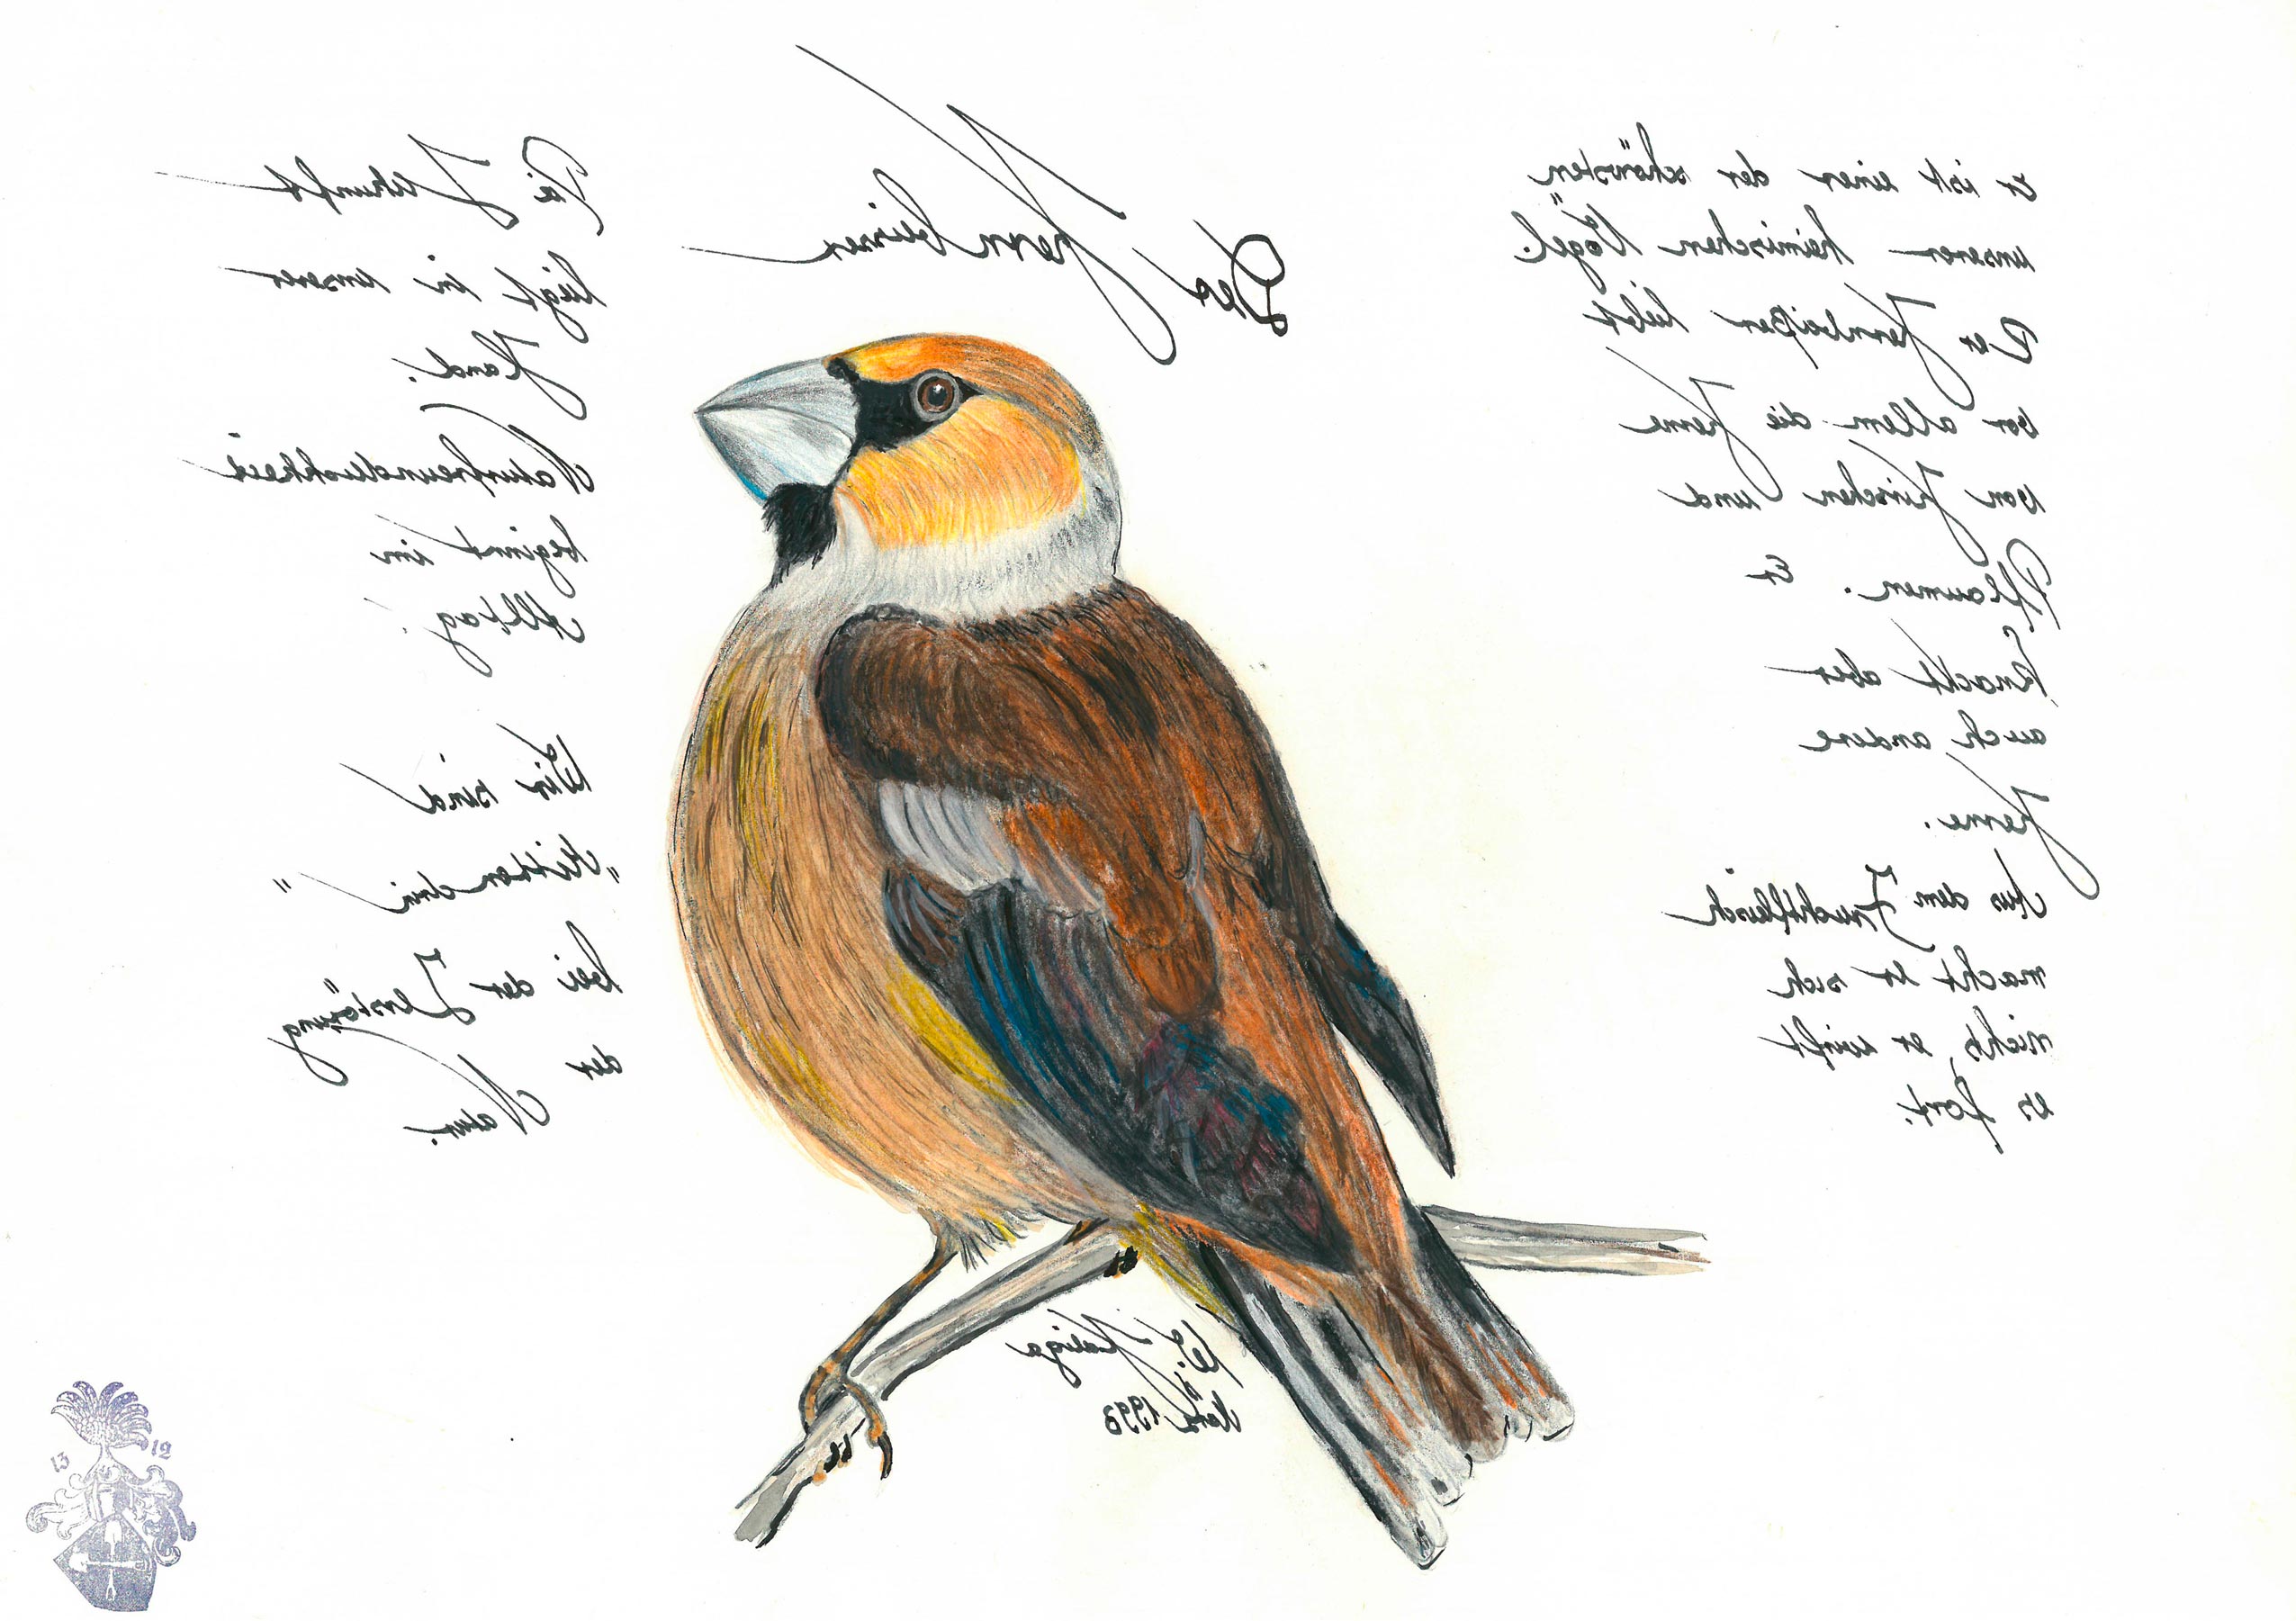 Der Kernbeisser
er ist einer der schönsten
unserer heimischen Vögel.
Der Kernbeißer liebt
vor allem die Kerne
von Kirschen und
Pflaumen. Er
knackt aber
auch andere
Kerne.
Aus dem Fruchtfleisch
macht er sich
nichts, er wirft
es fort.
Die Zukunft
liegt in unserer
Hand.
Naturfreundlichkeit
beginnt im
Alltag!
Wir sind
„Mittendrin"
bei der Zerstörung
der Natur.
März 1993
13 12